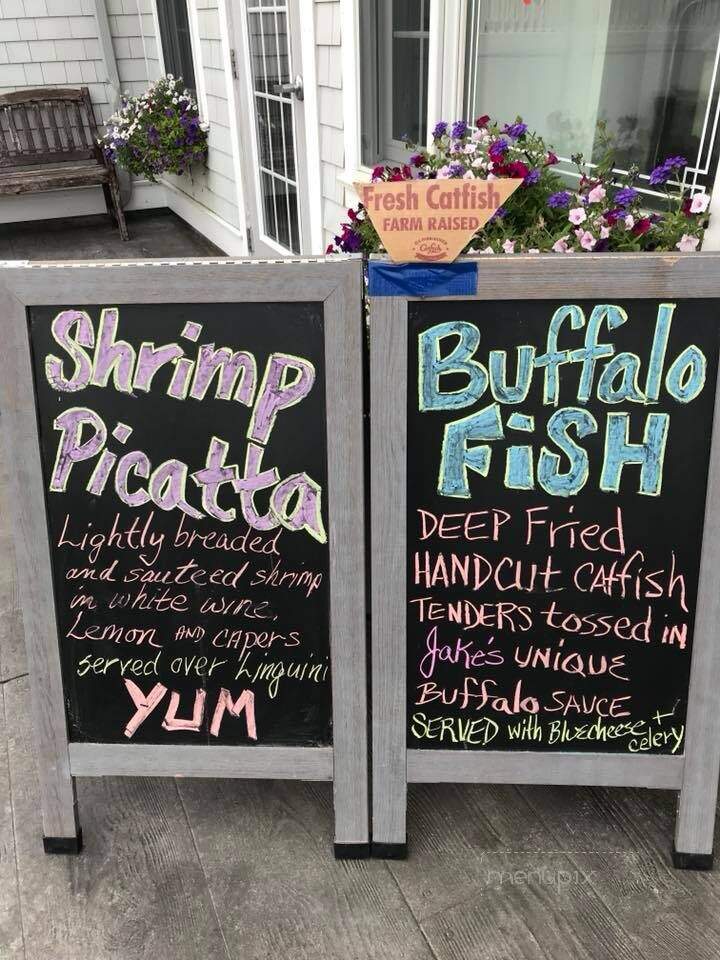 Shrimp
Picatta
Lightly breaded
and sauteed shrimp
in white wine,
Lemon AND CAPERS
served over Linguini
YUM
Fresh Catfish
FARM RAISED
Buffalo
FiSH
DEEP Fried
HANDCUt CAtfish
TENDERS tossed iN
Jake's UNIQUE
Buffalo SAUCE
SERVED with Bluecheese +
celery
menupix